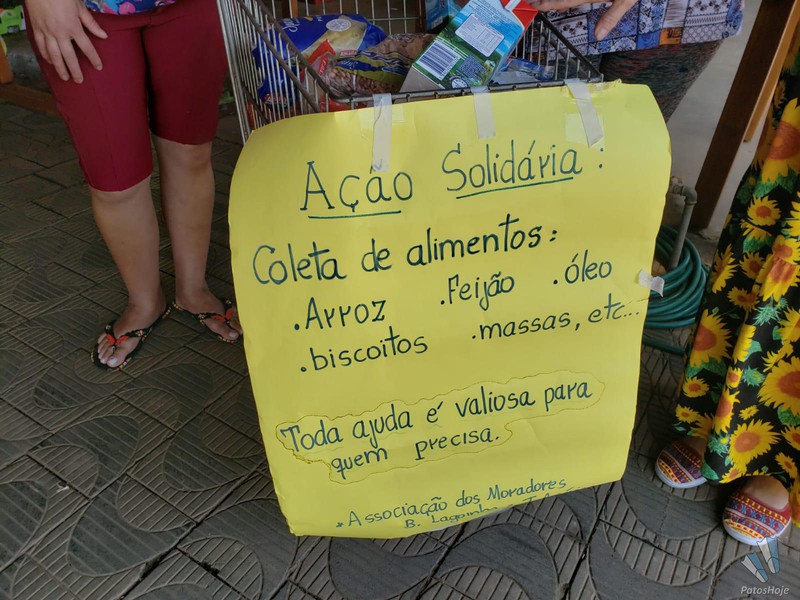 Ação Solidária:
Coleta de alimentos:
.Arroz .Feijão .óleo
.biscoitos .massas, etc...
Toda ajuda é valiosa para
quem precisa.
* Associação dos Moradores
B. Lagoinha
PatosHoje